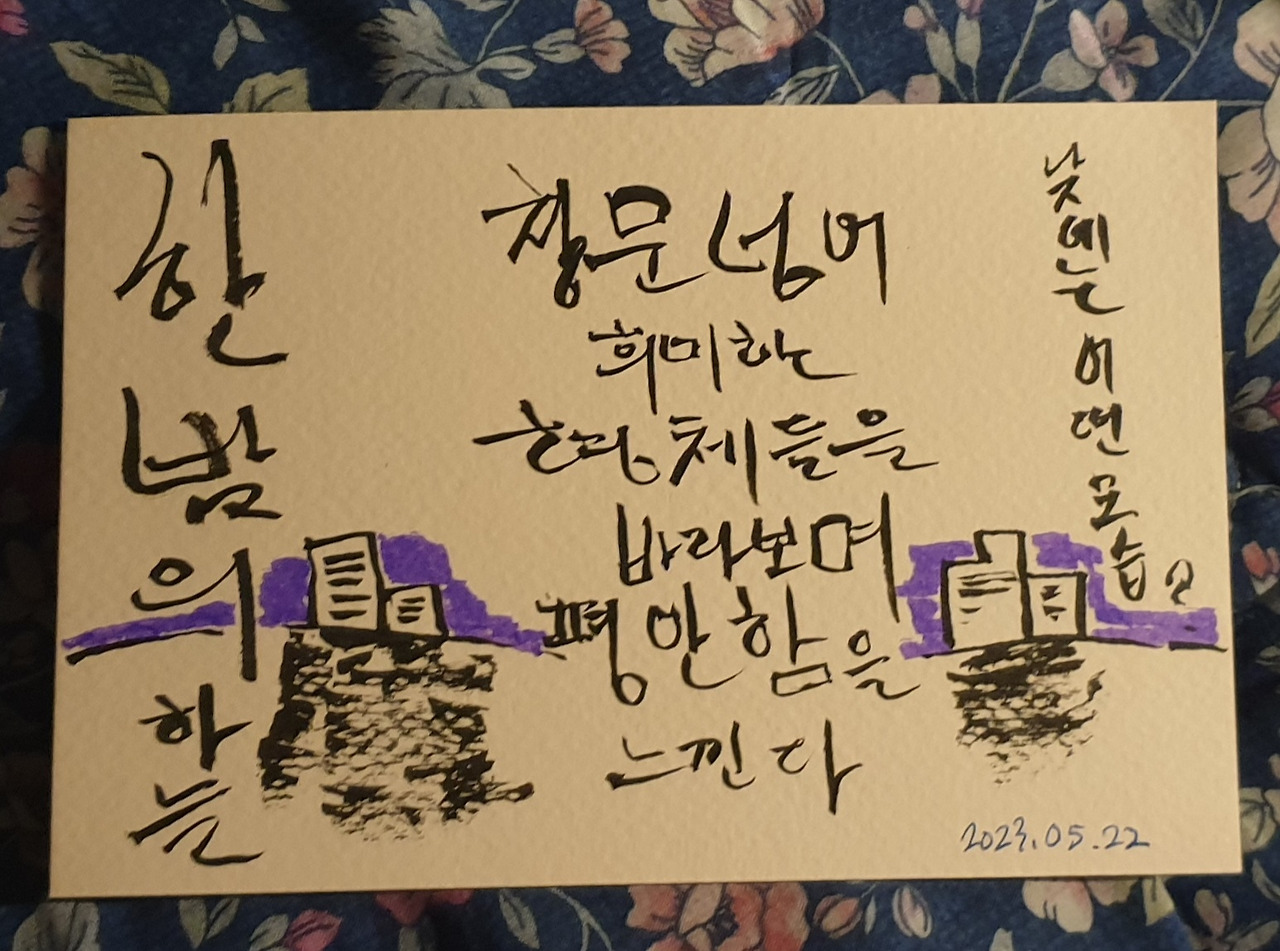 한밤의 하늘
창문 넘어
희미한
형체들을
바라보며
평안함을
느낀다
낮에는 어떤 모습
2023.05.22